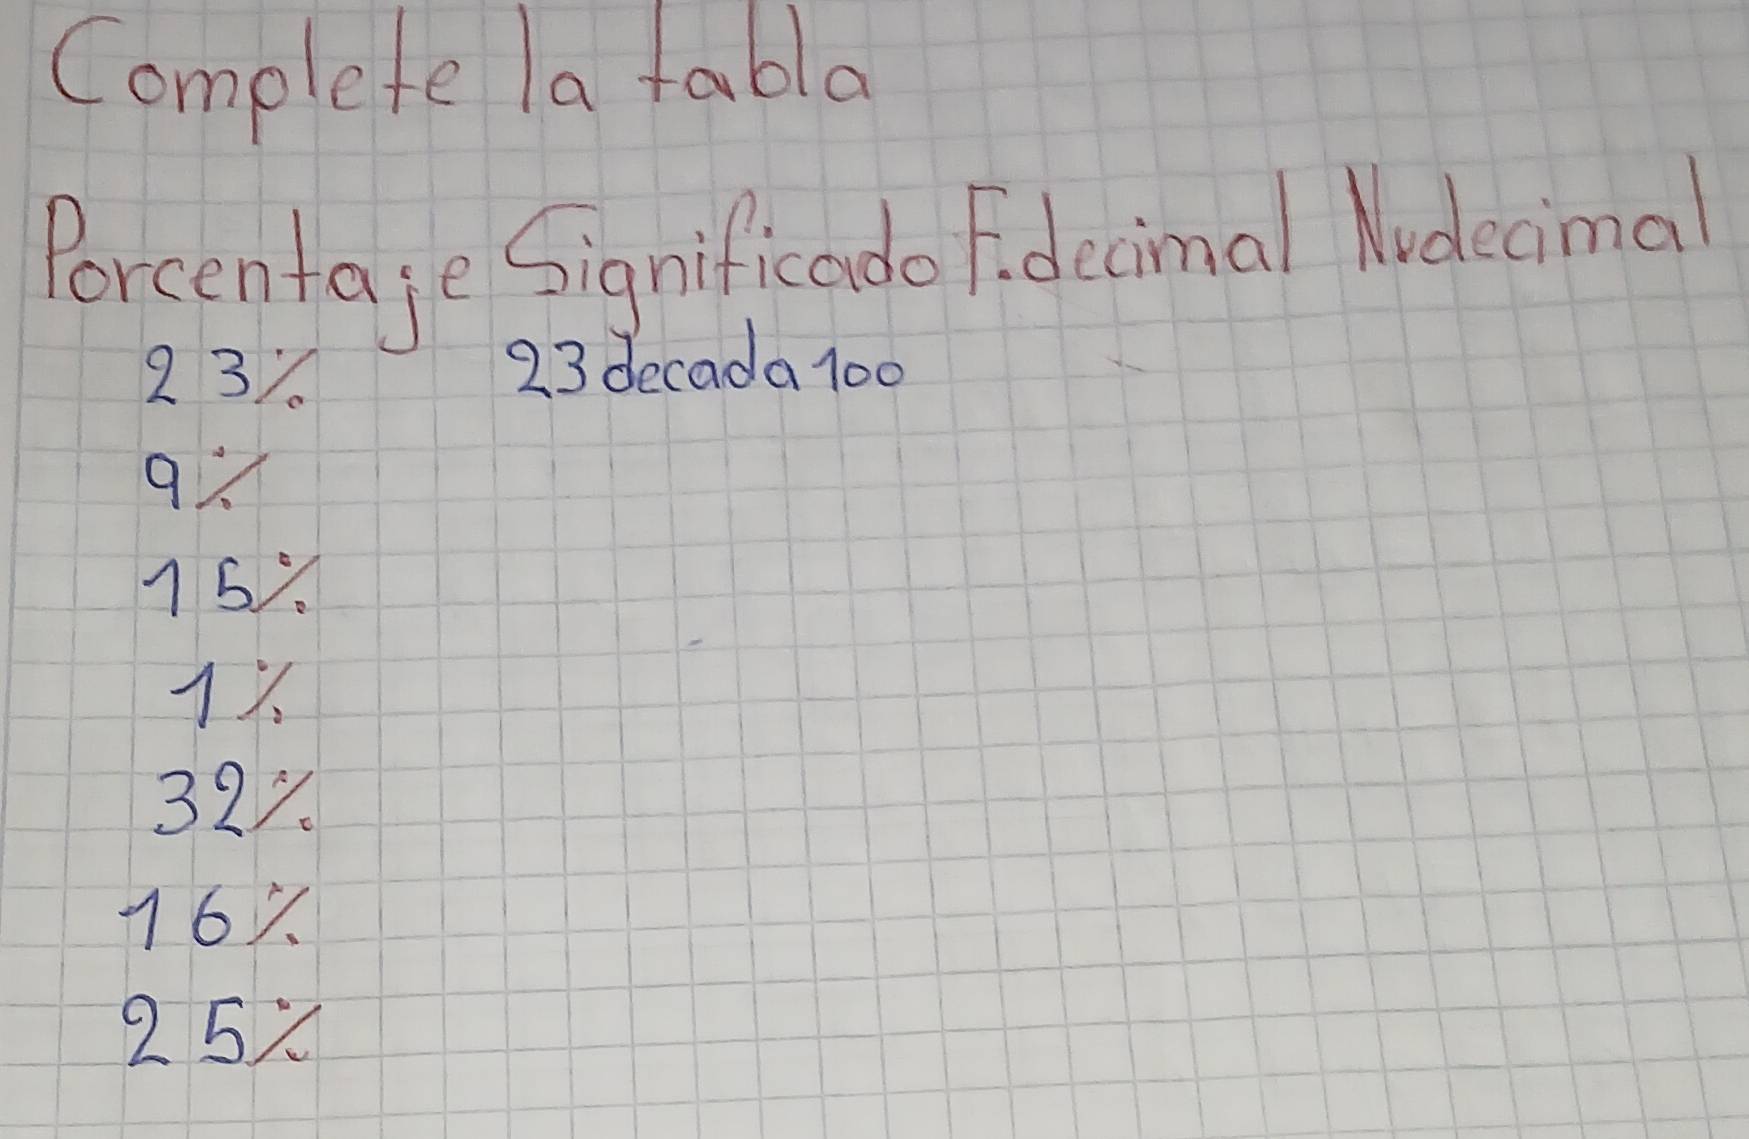 Complete la tabla
Porcentaje Significado F.decimal Nudecimal
23% 23 decada 100
9%
15%
1%
32%
16%
25%